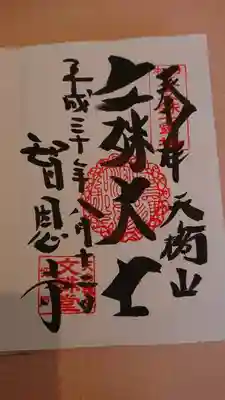 奉拝 天橋山
文殊大士
平成三十年八月十日
智恩寺
文殊堂